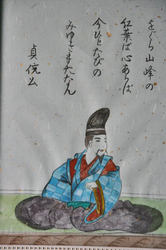 をぐら山峰の
紅葉ば心あらば
今ひとたびの
みゆきまたなん
貞信公